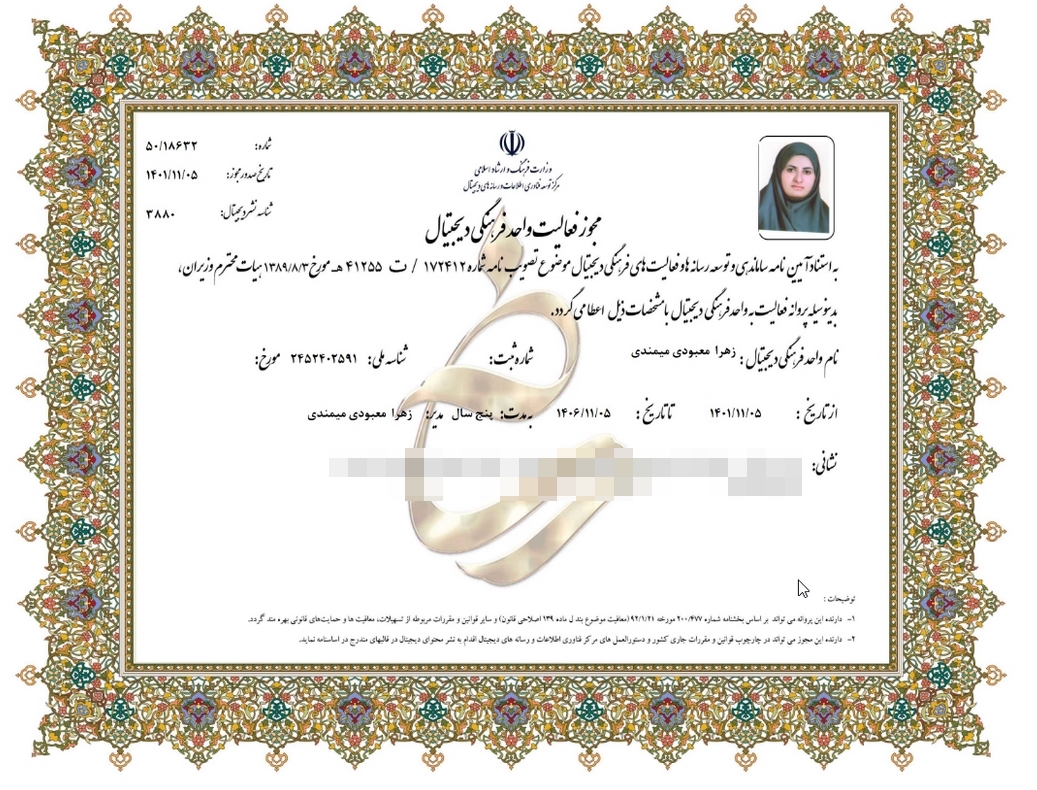 وزارت فرهنگ و ارشاد اسلامی
مرکز توسعه فناوری اطلاعات و رسانه های دیجیتال
شماره: ۵۰/۱۸۶۳۲
تاریخ صدور مجوز: ۱۴۰۱/۱۱/۰۵
شناسه نشر دیجیتال: ۳۸۸۰
مجوز فعالیت واحد فرهنگی دیجیتال
به استناد آیین نامه ساماندهی و توسعه رسانه ها و فعالیت های فرهنگی دیجیتال موضوع تصویب نامه شماره ۱۷۲۴۱۲ / ت ۴۱۲۵۵ هـ مورخ ۱۳۸۹/۸/۳ هیات محترم وزیران،
بدینوسیله پروانه فعالیت به واحد فرهنگی دیجیتال با مشخصات ذیل اعطا می گردد.
نام واحد فرهنگی دیجیتال : زهرا معبودی میمندی شماره ثبت: شناسه ملی: ۲۴۵۲۴۰۲۵۹۱ مورخ:
از تاریخ : ۱۴۰۱/۱۱/۰۵ تا تاریخ : ۱۴۰۶/۱۱/۰۵ به مدت: پنج سال مدیر: زهرا معبودی میمندی
نشانی:
توضیحات :
۱- دارنده این پروانه می تواند بر اساس بخشنامه شماره ۲۰۰/۴۷۷ مورخه ۹۲/۱/۲۱ (معافیت موضوع بند ل ماده ۱۳۹ اصلاحی قانون) و سایر قوانین و مقررات مربوطه از تسهیلات، معافیت ها و حمایت‌های قانونی بهره مند گردد.
۲- دارنده این مجوز می تواند در چارچوب قوانین و مقررات جاری کشور و دستورالعمل های مرکز فناوری اطلاعات و رسانه های دیجیتال اقدام به نشر محتوای دیجیتال در قالبهای مندرج در اساسنامه نماید.